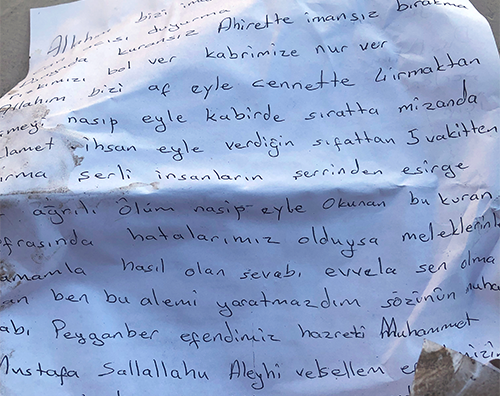 Allahım bizi
acısı duyurma Ahirette imansız bırakma
kuransız
bol ver kabrimize nur ver
Allahım bizi af eyle cennette 4 ırmaktan
nasip eyle kabirde sıratta mizanda
lamet ihsan eyle verdiğin sıfattan 5 vakitten
ırma şerli insanların şerrinden esirge
ağrılı Ölüm nasip eyle Okunan bu kuran
frasında hatalarımız olduysa meleklerinl
amamla hasıl olan sevabı evvela sen olma
an ben bu alemi yaratmazdım sözünün muha
abı Peyganber efendimiz hazreti Muhammet
Mustafa Sallallahu Aleyhi vesellem